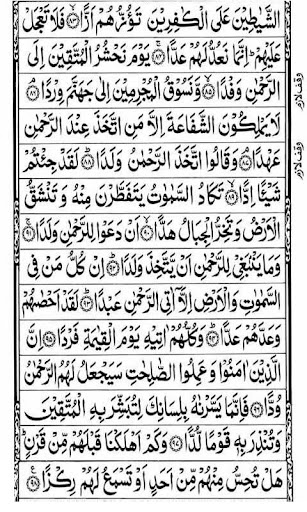 الشَّيٰطِيْنَ عَلَى الْكٰفِرِيْنَ تَؤُزُّهُمْ اَزًّا ﴿٨٣﴾ فَلَا تَعْجَلْ
عَلَيْهِمْ ؕ اِنَّمَا نَعُدُّ لَهُمْ عَدًّا ﴿٨٤﴾ يَوْمَ نَحْشُرُ الْمُتَّقِيْنَ اِلَى
الرَّحْمٰنِ وَفْدًا ﴿٨٥﴾ وَّنَسُوْقُ الْمُجْرِمِيْنَ اِلٰى جَهَنَّمَ وِرْدًا ﴿٨٦﴾
وقف لازم
لَا يَمْلِكُوْنَ الشَّفَاعَةَ اِلَّا مَنِ اتَّخَذَ عِنْدَ الرَّحْمٰنِ
عَهْدًا ﴿٨٧﴾ وَقَالُوا اتَّخَذَ الرَّحْمٰنُ وَلَدًا ﴿٨٨﴾ لَقَدْ جِئْتُمْ
وقف لازم
شَيْـًٔا اِدًّا ﴿٨٩﴾ تَكَادُ السَّمٰوٰتُ يَتَفَطَّرْنَ مِنْهُ وَ تَنْشَقُّ
الْاَرْضُ وَتَخِرُّ الْجِبَالُ هَدًّا ﴿٩٠﴾ اَنْ دَعَوْا لِلرَّحْمٰنِ وَلَدًا ﴿٩١﴾
وَمَا يَنْۢبَغِيْ لِلرَّحْمٰنِ اَنْ يَّتَّخِذَ وَلَدًا ﴿٩٢﴾ اِنْ كُلُّ مَنْ فِي
السَّمٰوٰتِ وَالْاَرْضِ اِلَّاۤ اٰتِي الرَّحْمٰنِ عَبْدًا ﴿٩٣﴾ لَقَدْ اَحْصٰهُمْ
وَعَدَّهُمْ عَدًّا ﴿٩٤﴾ وَكُلُّهُمْ اٰتِيْهِ يَوْمَ الْقِيٰمَةِ فَرْدًا ﴿٩٥﴾ اِنَّ
الَّذِيْنَ اٰمَنُوْا وَ عَمِلُوا الصّٰلِحٰتِ سَيَجْعَلُ لَهُمُ الرَّحْمٰنُ
وُدًّا ﴿٩٦﴾ فَاِنَّمَا يَسَّرْنٰهُ بِلِسَانِكَ لِتُبَشِّرَ بِهِ الْمُتَّقِيْنَ
وَتُنْذِرَ بِهٖ قَوْمًا لُّدًّا ﴿٩٧﴾ وَكَمْ اَهْلَكْنَا قَبْلَهُمْ مِّنْ قَرْنٍ ؕ
هَلْ تُحِسُّ مِنْهُمْ مِّنْ اَحَدٍ اَوْ تَسْمَعُ لَهُمْ رِكْزًا ﴿٩٨﴾